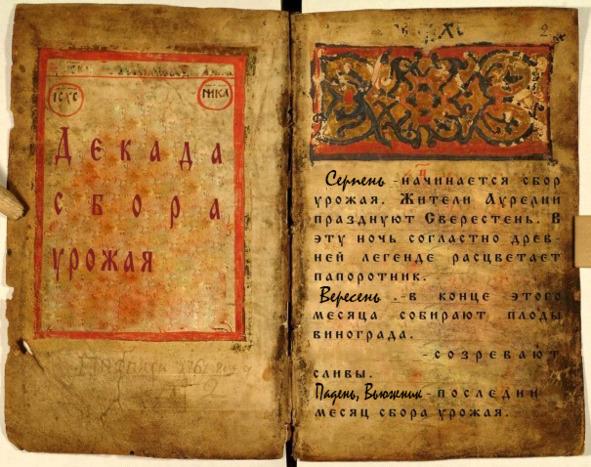 ІСХС НИКА
Декада
сбора
урожая
Серпень - начинается сбор
урожая. Жители Аурелии
празднуют Сверестень. В
эту ночь согластно древ-
ней легенде расцветает
папоротник.
Вересень .-в конце этого
месяца собирают плоды
винограда.
-созревают
сливы.
Падень, Вьюжник - последнии
месяц сбора урожая.